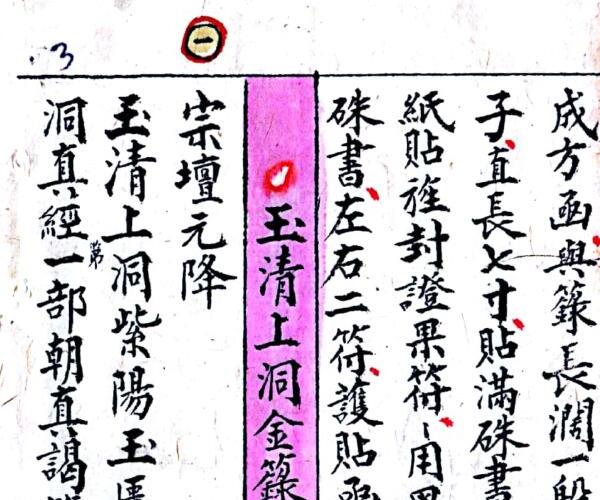 成方函與籙長濶一段
子直長七寸貼滿硃書
紙貼旌封證果符、用
硃書左右二符護貼函
玉清上洞金籙
宗壇元降
玉清上洞紫陽玉
洞真經一部第朝真謁
一
3